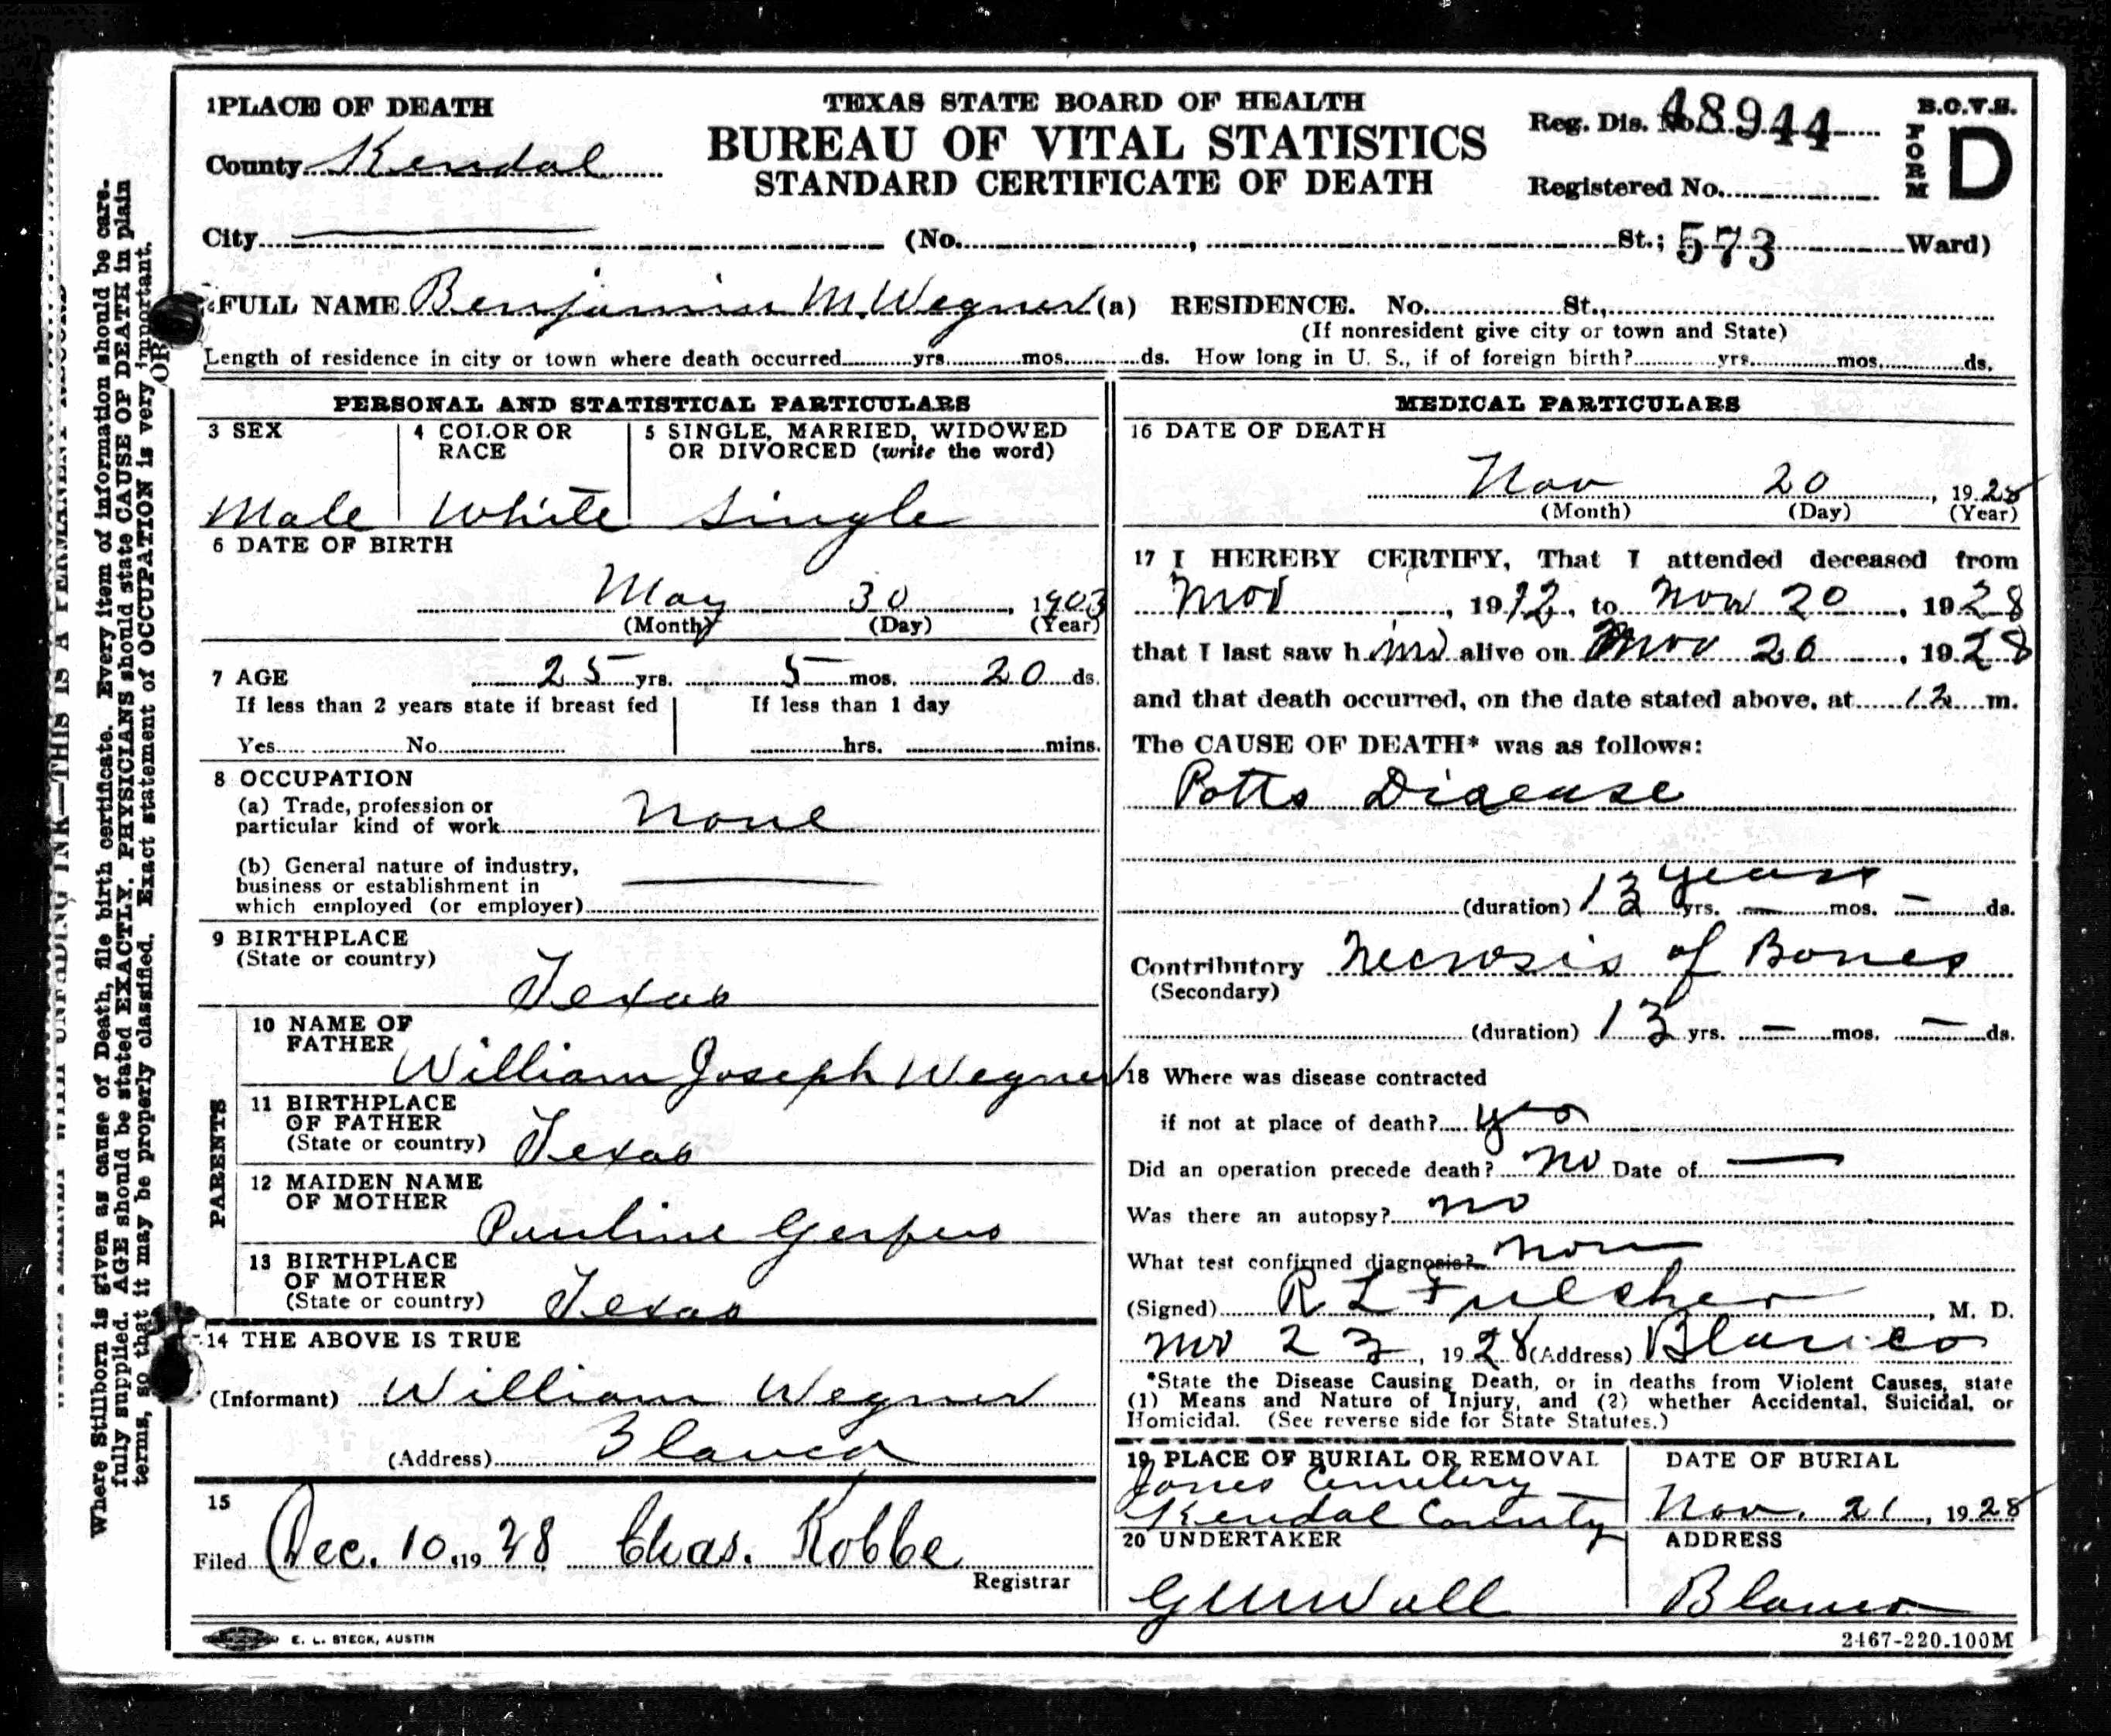 TEXAS STATE BOARD OF HEALTH
BUREAU OF VITAL STATISTICS
STANDARD CERTIFICATE OF DEATH
1 PLACE OF DEATH
County Kendal
Reg. Dis. No. 48944
Registered No.
B.O.V.S.
FORM D
City (No. , St.; 573 Ward)
2 FULL NAME Benjamin M. Wegner (a) RESIDENCE. No. St.,
(If nonresident give city or town and State)
Length of residence in city or town where death occurred yrs. mos. ds. How long in U. S., if of foreign birth? yrs. mos. ds.
PERSONAL AND STATISTICAL PARTICULARS
3 SEX
Male
4 COLOR OR RACE
White
5 SINGLE, MARRIED, WIDOWED
OR DIVORCED (write the word)
Single
6 DATE OF BIRTH
May 30, 1903
(Month) (Day) (Year)
7 AGE 25 yrs. 5 mos. 20 ds.
If less than 2 years state if breast fed
Yes No
If less than 1 day
hrs. mins.
8 OCCUPATION
(a) Trade, profession or
particular kind of work None
(b) General nature of industry,
business or establishment in
which employed (or employer)
9 BIRTHPLACE
(State or country)
Texas
PARENTS
10 NAME OF
FATHER William Joseph Wegner
11 BIRTHPLACE
OF FATHER
(State or country) Texas
12 MAIDEN NAME
OF MOTHER
Pauline
13 BIRTHPLACE
OF MOTHER
(State or country) Texas
14 THE ABOVE IS TRUE
(Informant) William Wegner
(Address) Blanco
15
Filed Dec. 10, 1928 Chas. Kobbe
Registrar
MEDICAL PARTICULARS
16 DATE OF DEATH
Nov 20, 1928
(Month) (Day) (Year)
17 I HEREBY CERTIFY, That I attended deceased from
Nov, 1912, to Nov 20, 1928
that I last saw him alive on Nov 20, 1928
and that death occurred, on the date stated above, at 12 m.
The CAUSE OF DEATH* was as follows:
Potts Disease
years
(duration) 13 yrs. — mos. — ds.
Contributory Necrosis of Bones
(Secondary)
(duration) 13 yrs. — mos. — ds.
18 Where was disease contracted
if not at place of death? yes
Did an operation precede death? no Date of —
Was there an autopsy? no
What test confirmed diagnosis?
(Signed) R L Fulcher, M. D.
Nov 23, 1928 (Address) Blanco
*State the Disease Causing Death, or in deaths from Violent Causes, state
(1) Means and Nature of Injury, and (2) whether Accidental, Suicidal, or
Homicidal. (See reverse side for State Statutes.)
19 PLACE OF BURIAL OR REMOVAL
Jones Cemetery
Kendal County
DATE OF BURIAL
Nov. 21, 1928
20 UNDERTAKER
ADDRESS
Blanco
E. L. STECK, AUSTIN
2467-220.100M
INK—THIS IS A PERMANENT RECORD
Where Stillborn is given as cause of Death, file birth certificate. Every item of information should be care-
fully supplied. AGE should be stated EXACTLY. PHYSICIANS should state CAUSE OF DEATH in plain
terms, so that it may be properly classified. Exact statement of OCCUPATION is very important.